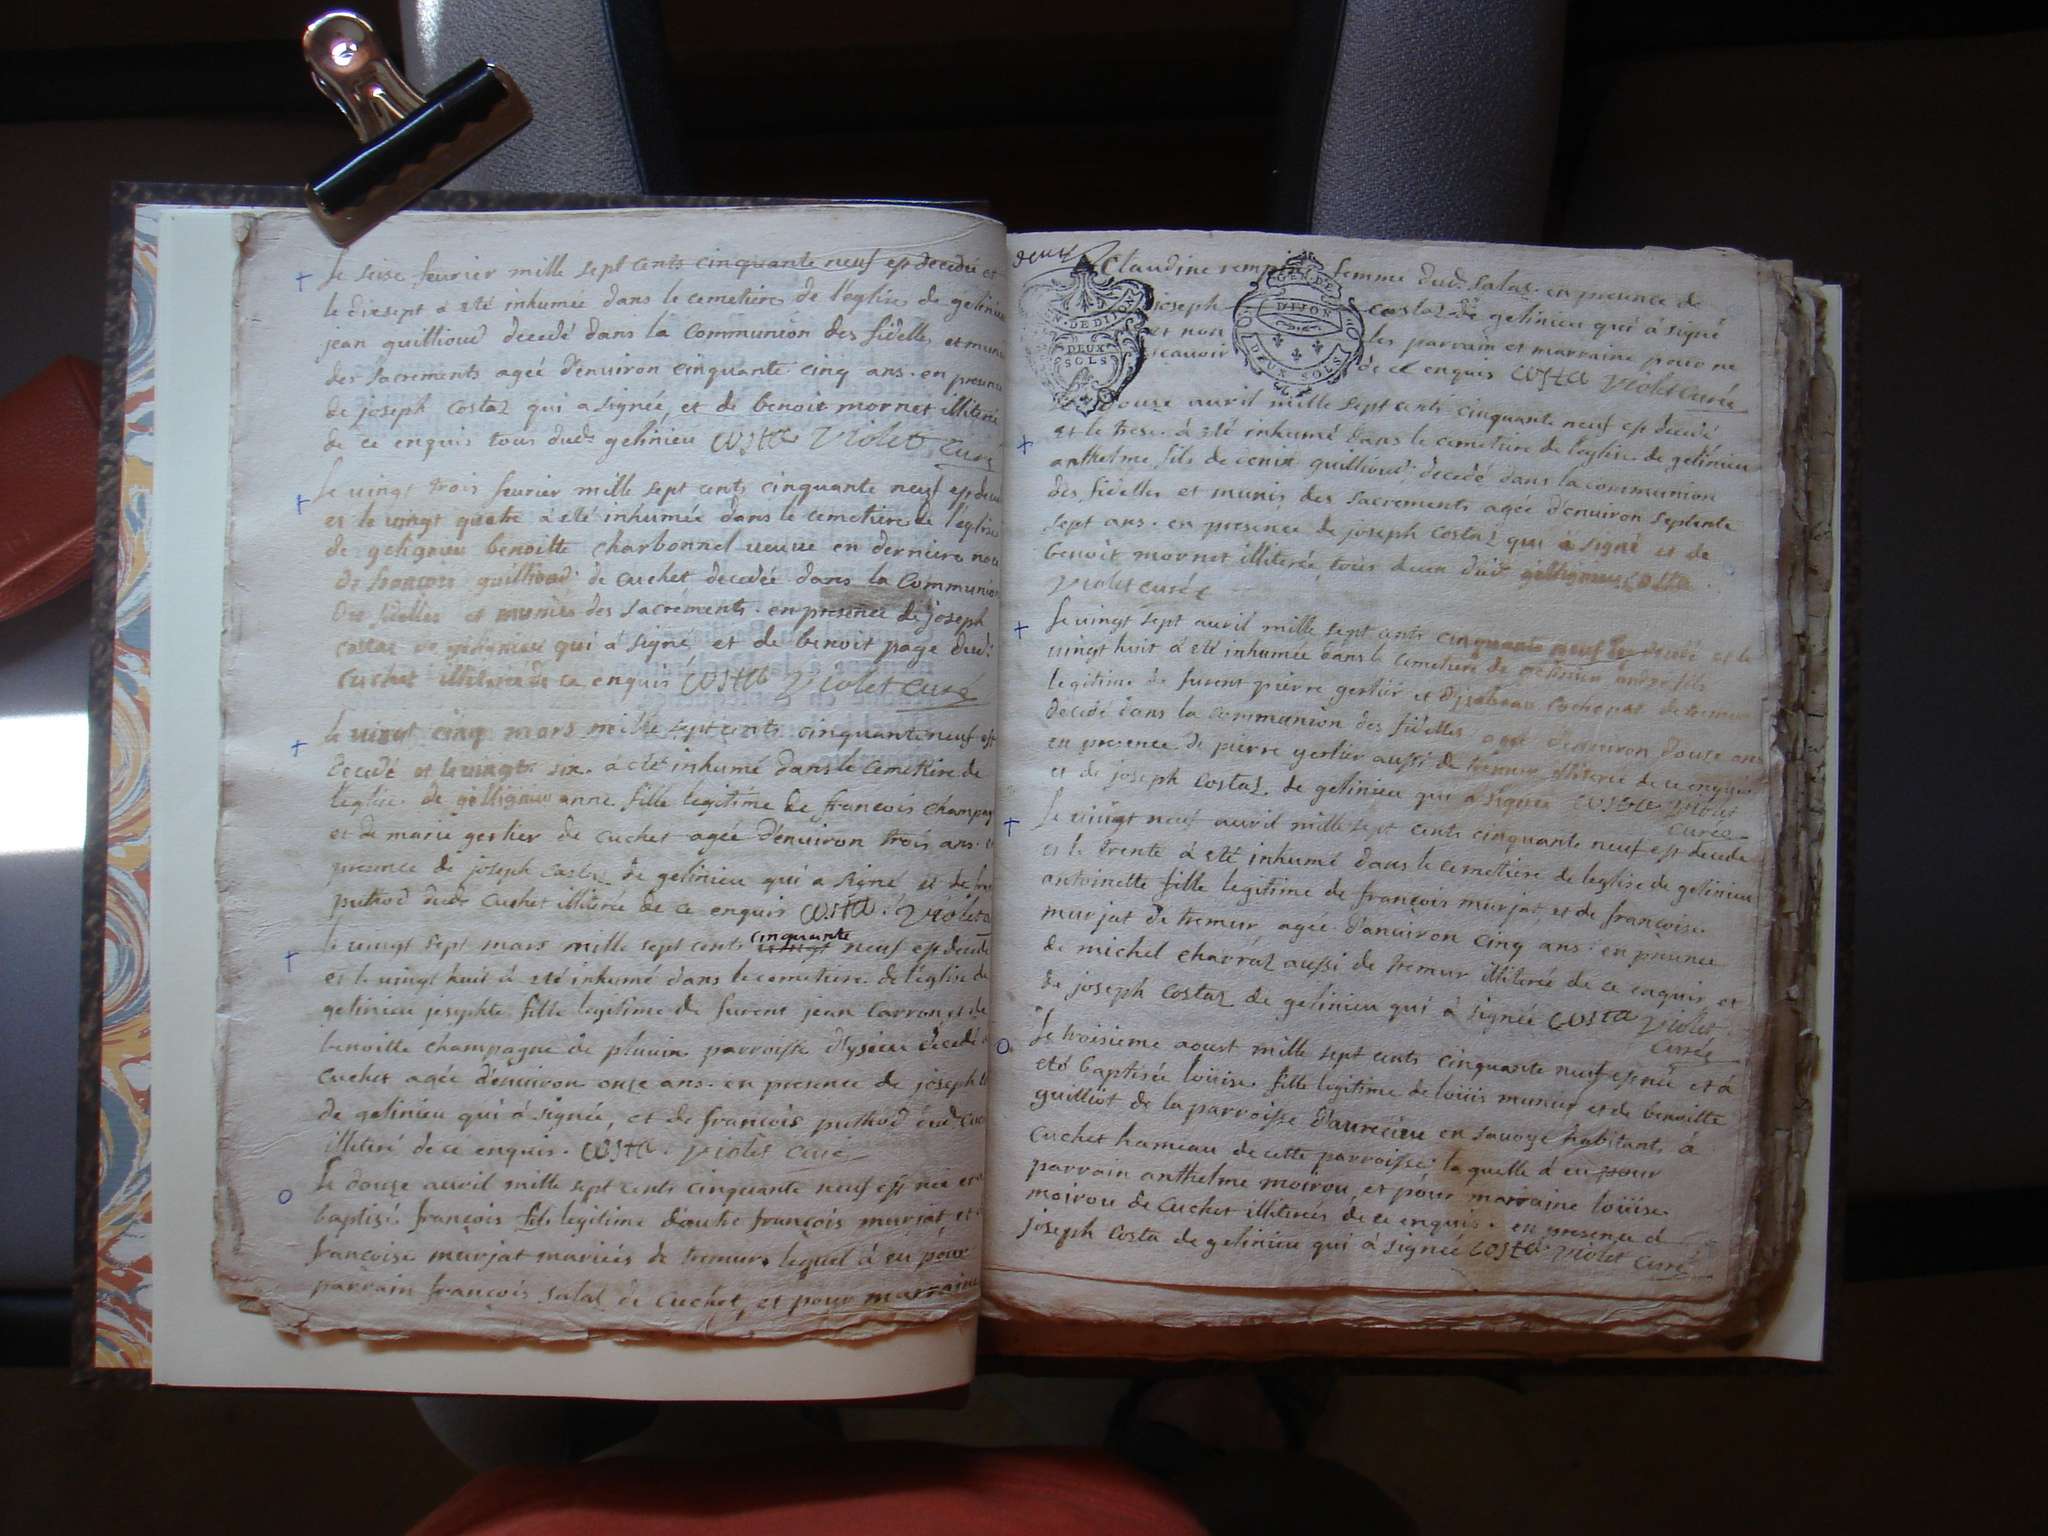 Le seise feurier mille sept cents cinquante neuf est decedé et
le dixsept à été inhumée dans le cemetiere de l'eglise de gelinieu
jean guillioud decedé dans la communion des fidelles et muni
des sacrements ageé d'enuiron cinquante cinq ans. en presence
de joseph costaz qui a signée, et de benoit mornet illiteré
de ce enquis tous dud: gelinieu costa Violet curé
Le uingt trois feurier mille sept cents cinquante neuf est decedé
et le uingt quatre à été inhumée dans le cemetiere de l'eglise
de gelignieu benoitte charbonnel ueuue en derniere
de françois guillioud de cuchet decedée dans la communion
des fidelles et munies des sacrements. en presence de joseph
costaz de gelignieu qui à signé et de benoit page dud:
cuchet illiteré de ce enquis costa Violet curé
Le uingt cinq mars mille sept cents cinquante neuf est
decedé et le uingt six à été inhumé dans le cemetiere de
l'eglise de gellignieu anne fille legitime de françois champag
et de marie gerlier de cuchet ageé d'enuiron trois ans.
presence de joseph costaz de gelinieu qui a signé et de
puthod dud: cuchet illiteré de ce enquis costa. Violet
Le uingt sept mars mille sept cents uingt cinquante neuf est decedé
et le uingt huit à été inhumé dans le cemetiere de l'eglise de
gelinieu josephte fille legitime de furent jean Carron et de
benoitte champagne de pluuin parroisse d'ysieu decedé
cuchet ageé d'enuiron onze ans. en presence de joseph
de gelinieu qui à signée, et de françois puthod dud:
illiteré de ce enquis. costa. Violet curé
Le douze auril mille sept cents cinquante neuf est née et
baptisé françois fils legitime d'autre françois murjat et
françoise murjat mariés de tremurs lequel à eu pour
parrain françois salaz de cuchet, et pour marraine
deux Claudine femme dud: salaz en presence de
joseph costaz de gelinieu qui à signé
et non les parrain et marraine pour ne
scauoir de ce enquis costa Violet curée
GEN. DE DIJON
DEUX SOLS
DE DIJON
DEUX SOLS
Le douze auril mille sept cents cinquante neuf est decedé
et le treze à été inhumé dans le cemetiere de l'eglise de gelinieu
anthelme fils de guillioud; decedé dans la communion
des fidelles et munis des sacrements ageé d'enuiron septente
sept ans. en presence de joseph costaz qui à signé et de
benoit mornet illiterée, tous deux dud: gellignieu costa
Violet curée
Le uingt sept auril mille sept cents cinquante neuf est decedé et le
uingt huit à été inhumée dans le cemetiere de gelinieu andre fils
legitime de furent pierre gerlier et d'ysabeau de tremur
decedé dans la communion des fidelles ageé d'enuiron douze ans
en presence de pierre gerlier aussi de tremur illiteré de ce enquis
et de joseph costaz de gelinieu qui a signée costa Violet
curée
Le uingt neuf auril mille sept cents cinquante neuf est decedé
et le trente à été inhumé dans le cemetiere de leglise de gelinieu
antoinette fille legitime de françois murjat, et de françoise
murjat de tremur, ageé d'anuiron cinq ans. en presence
de michel charraz aussi de tremur illiterée de ce enquis, et
de joseph costaz de gelinieu qui à signée costa Violet
curée
Le troisieme aoust mille sept cents cinquante neuf est née et à
été baptisée loüise fille legitime de loüis munier et de benoitte
guilliot de la parroisse en sauoye habitants à
cuchet hameau de cette parroisse, la quelle à eu pour
parrain anthelme moirou, et pour marraine loüise
moirou de cuchet illiterés de ce enquis. en presence d
joseph costa de gelinieu qui à signée costa Violet curé